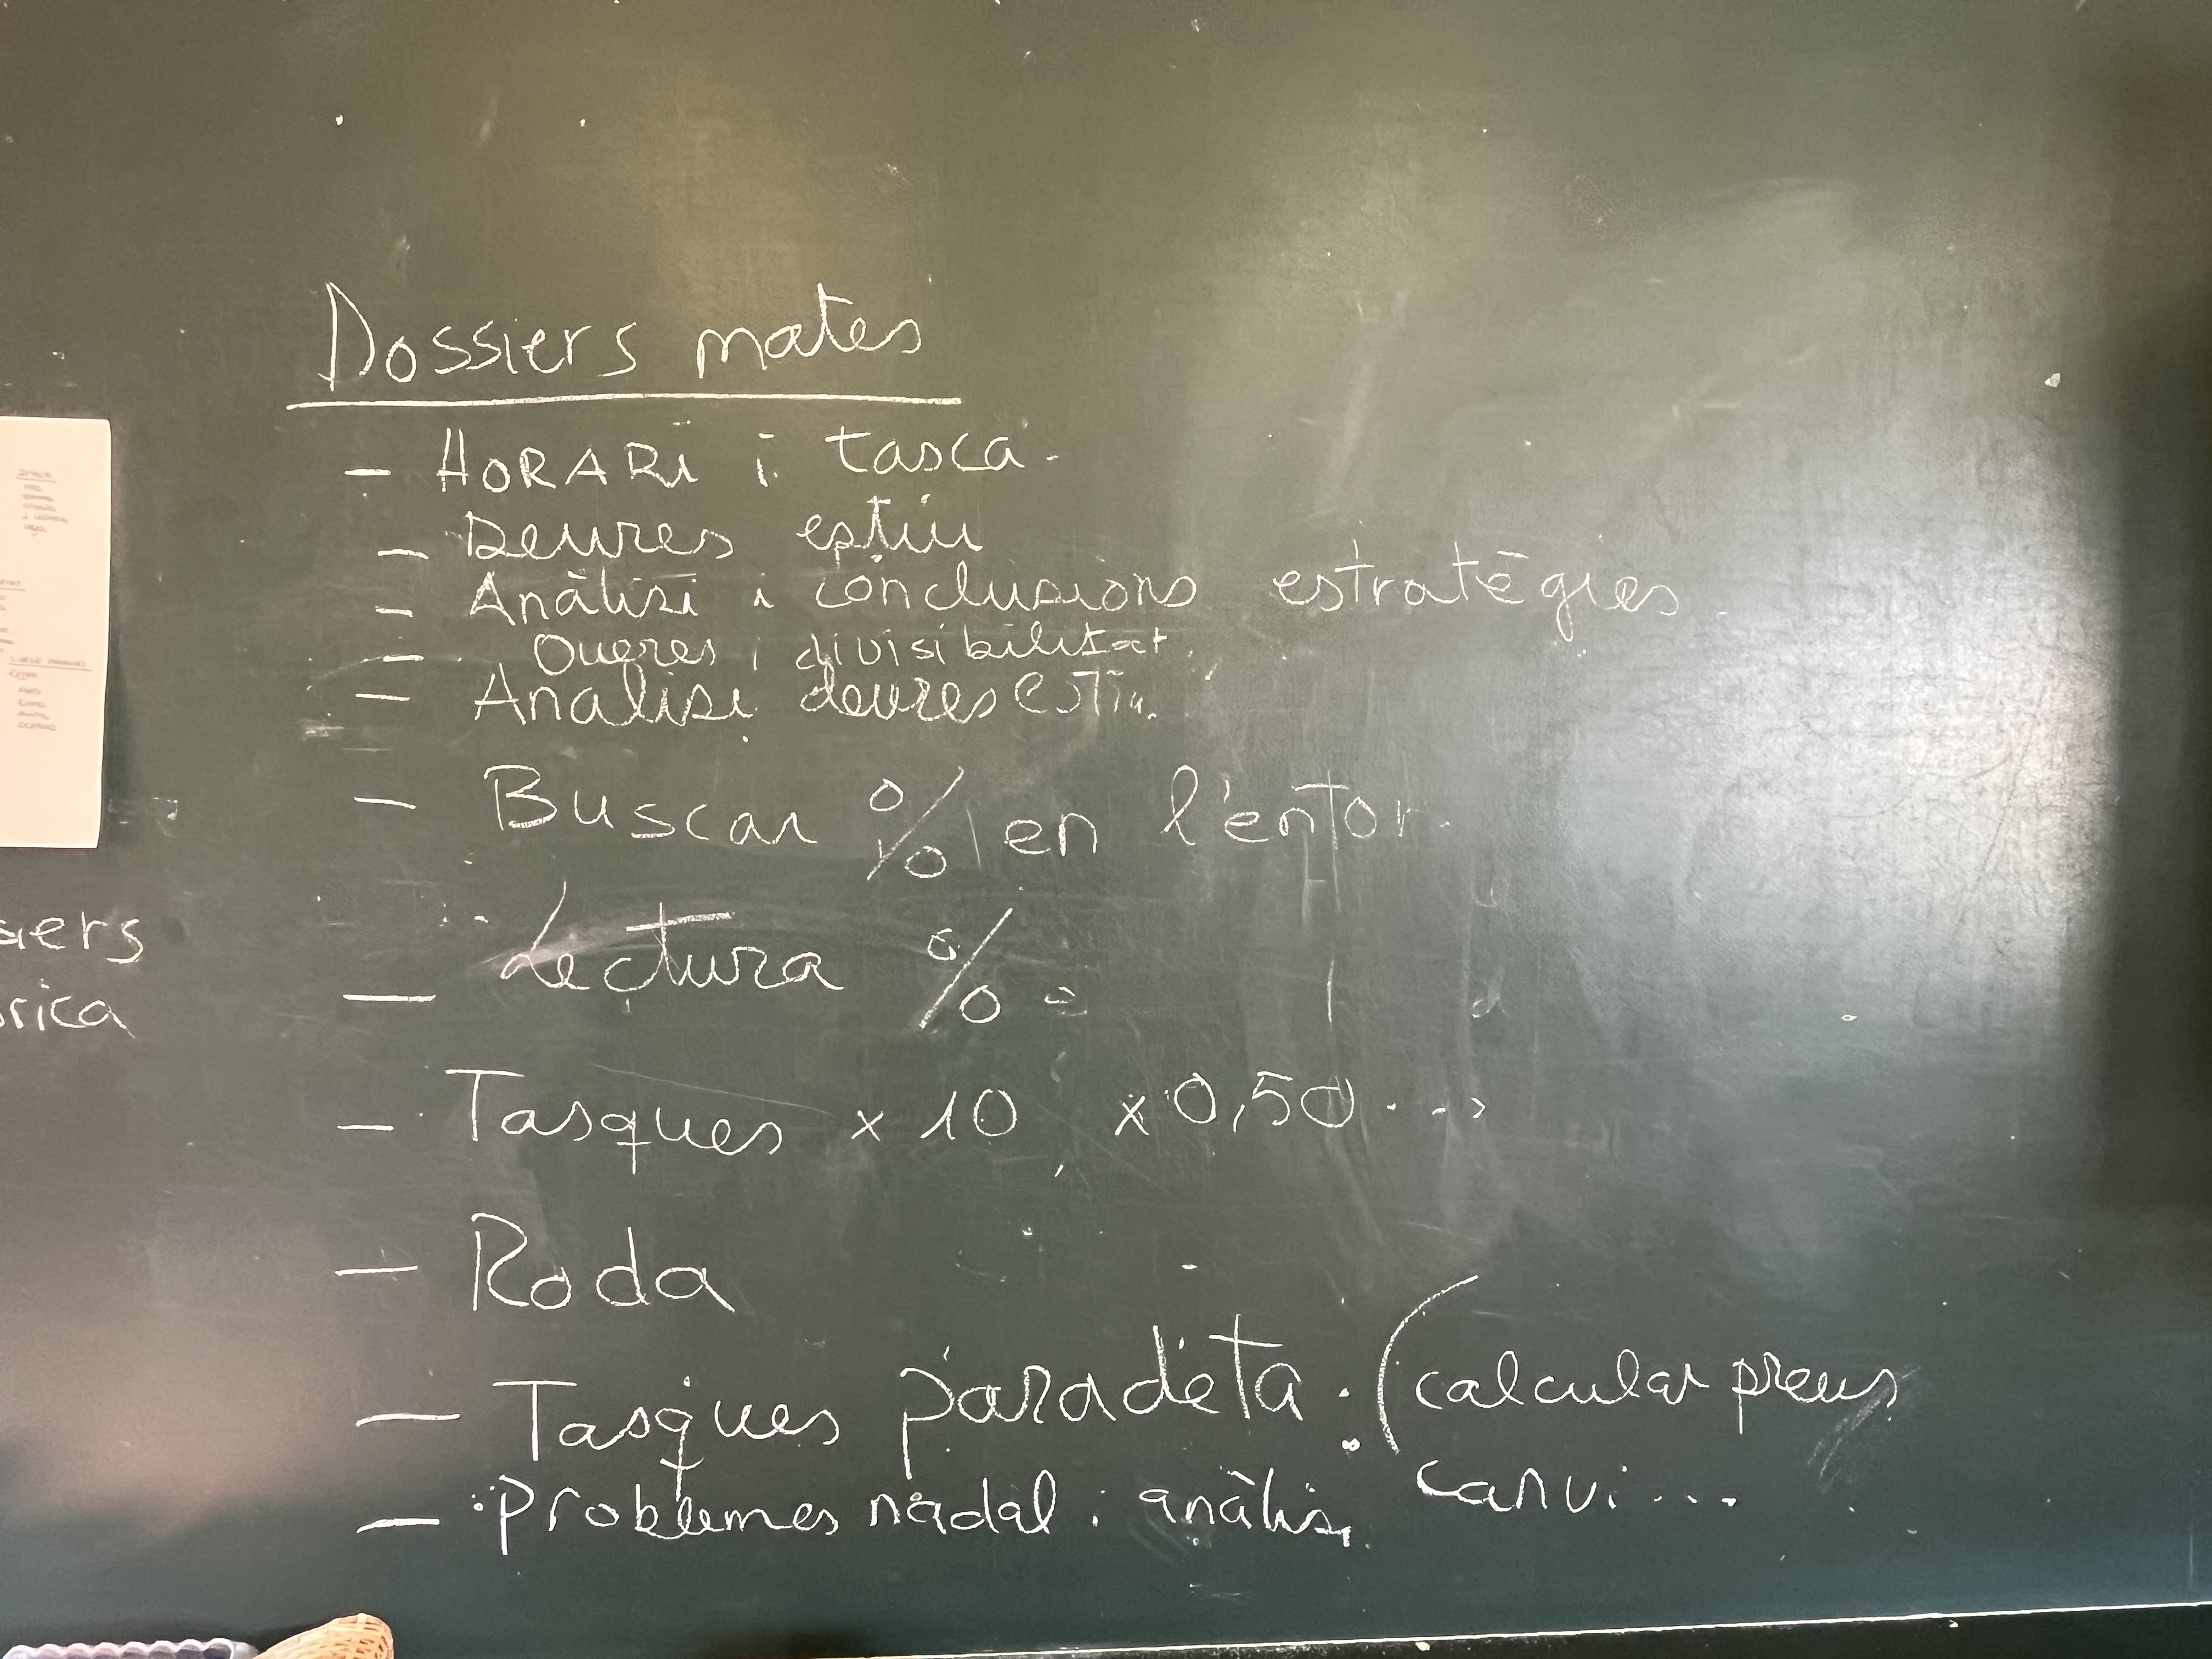 Dossiers mates
- HORARi i tasca.
- Deures estiu
- Anàlisi i conclusions estratègies
- Oueres i divisibilitat.
- Analisi deures estiu.
- Buscar % en l'entor.
- Lectura %
siers
rica
- Tasques x 10 x 0,50...
- Roda
- Tasques paradeta. (calcular preus
canvi...
- Problemes nadal i anàlisi